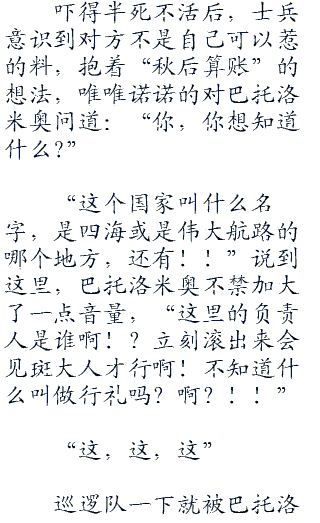 吓得半死不活后，士兵
意识到对方不是自己可以惹
的料，抱着“秋后算账”的
想法，唯唯诺诺的对巴托洛
米奥问道：“你，你想知道
什么?”
“这个国家叫什么名
字，是四海或是伟大航路的
哪个地方，还有！！”说到
这里，巴托洛米奥不禁加大
了一点音量，“这里的负责
人是谁啊！？立刻滚出来会
见斑大人才行啊！不知道什
么叫做行礼吗？啊？！！”
“这，这，这”
巡逻队一下就被巴托洛